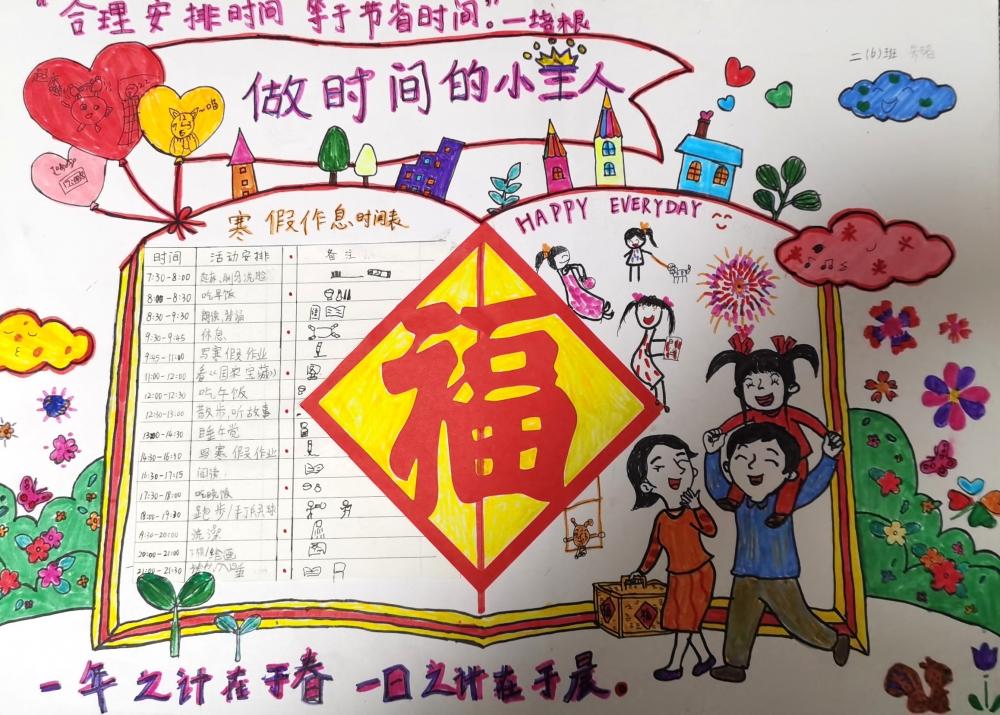 “合理安排时间 等于节省时间”。—培根
二(6)班
做时间的小主人
寒假作息时间表
HAPPY EVERYDAY
时间 活动安排 备注
7:30-8:00 起床、刷牙洗脸
8:00-8:30 吃早饭
8:30-9:30 朗读、背诵
9:30-9:45 休息
9:45-11:00 写寒假作业
11:00-12:00 看《国家宝藏》
12:00-12:30 吃午饭
12:30-13:00 散步,听故事
13:00-14:30 睡午觉
14:30-16:30 写寒假作业
16:30-17:15 阅读
17:30-18:00 吃晚饭
18:00-19:30 跑步/打乒乓球
19:30-20:00 洗澡
20:00-21:00 /绘画
21:00-21:30 入睡
福
一年之计在于春 一日之计在于晨。